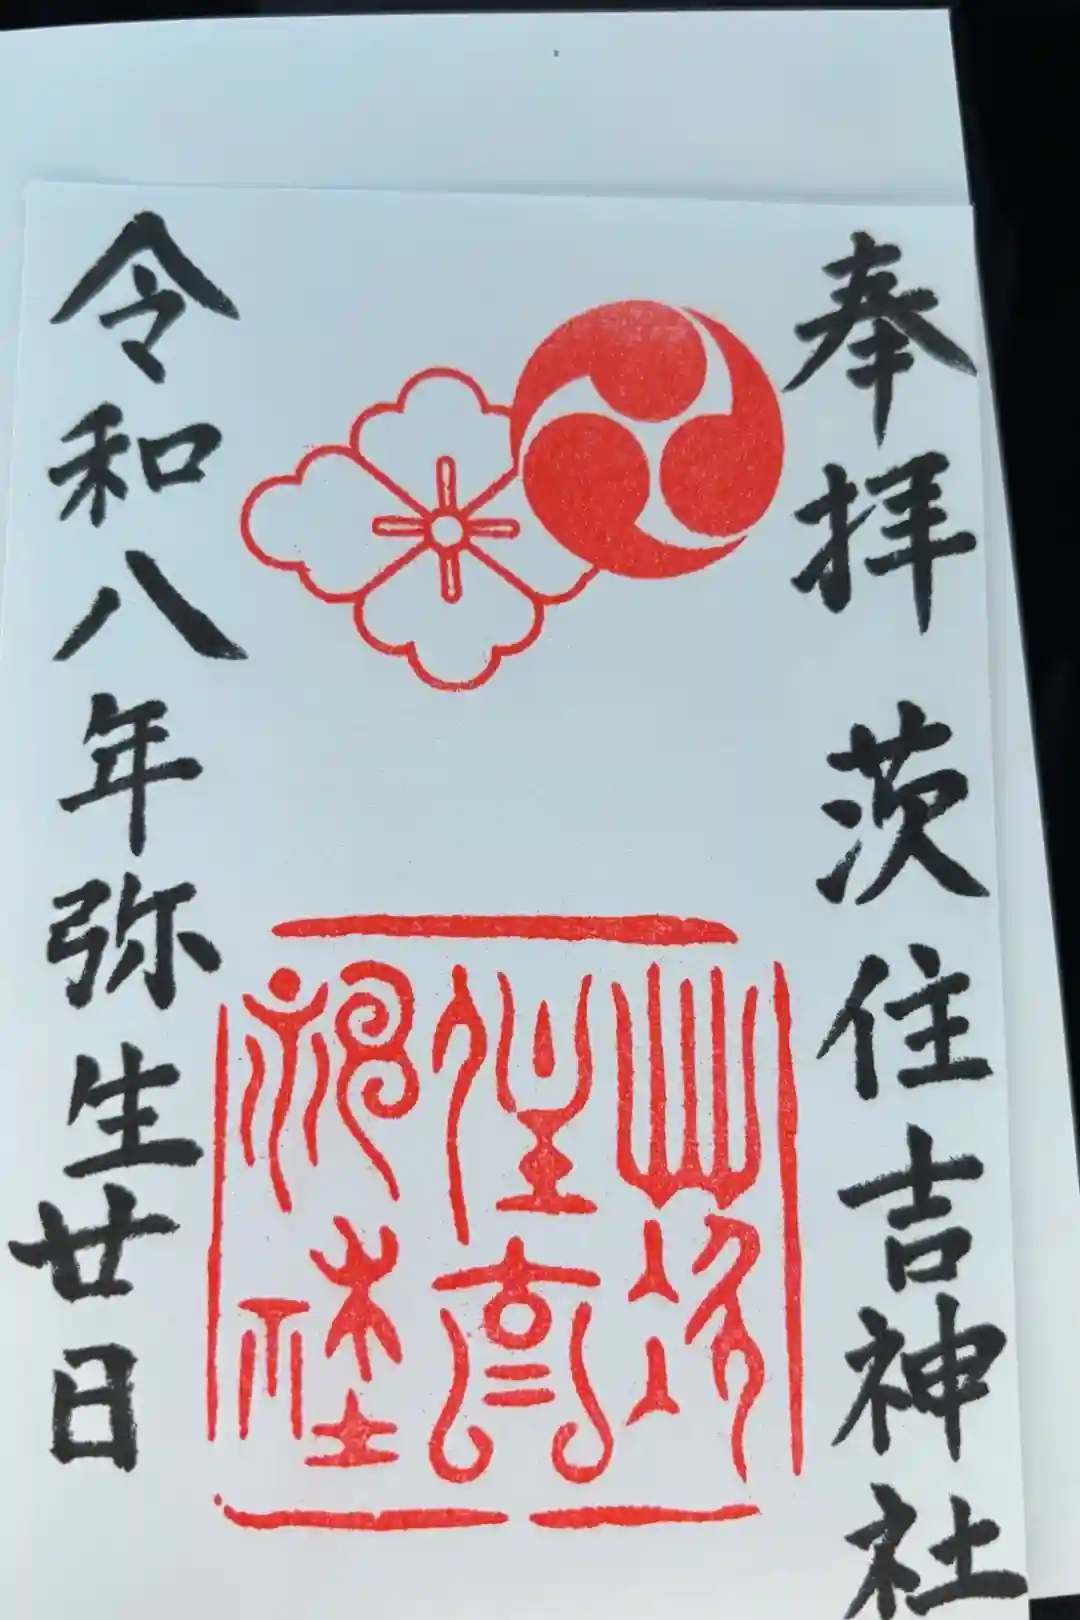 奉拝 茨住吉神社
茨住吉神社
令和八年弥生廿日